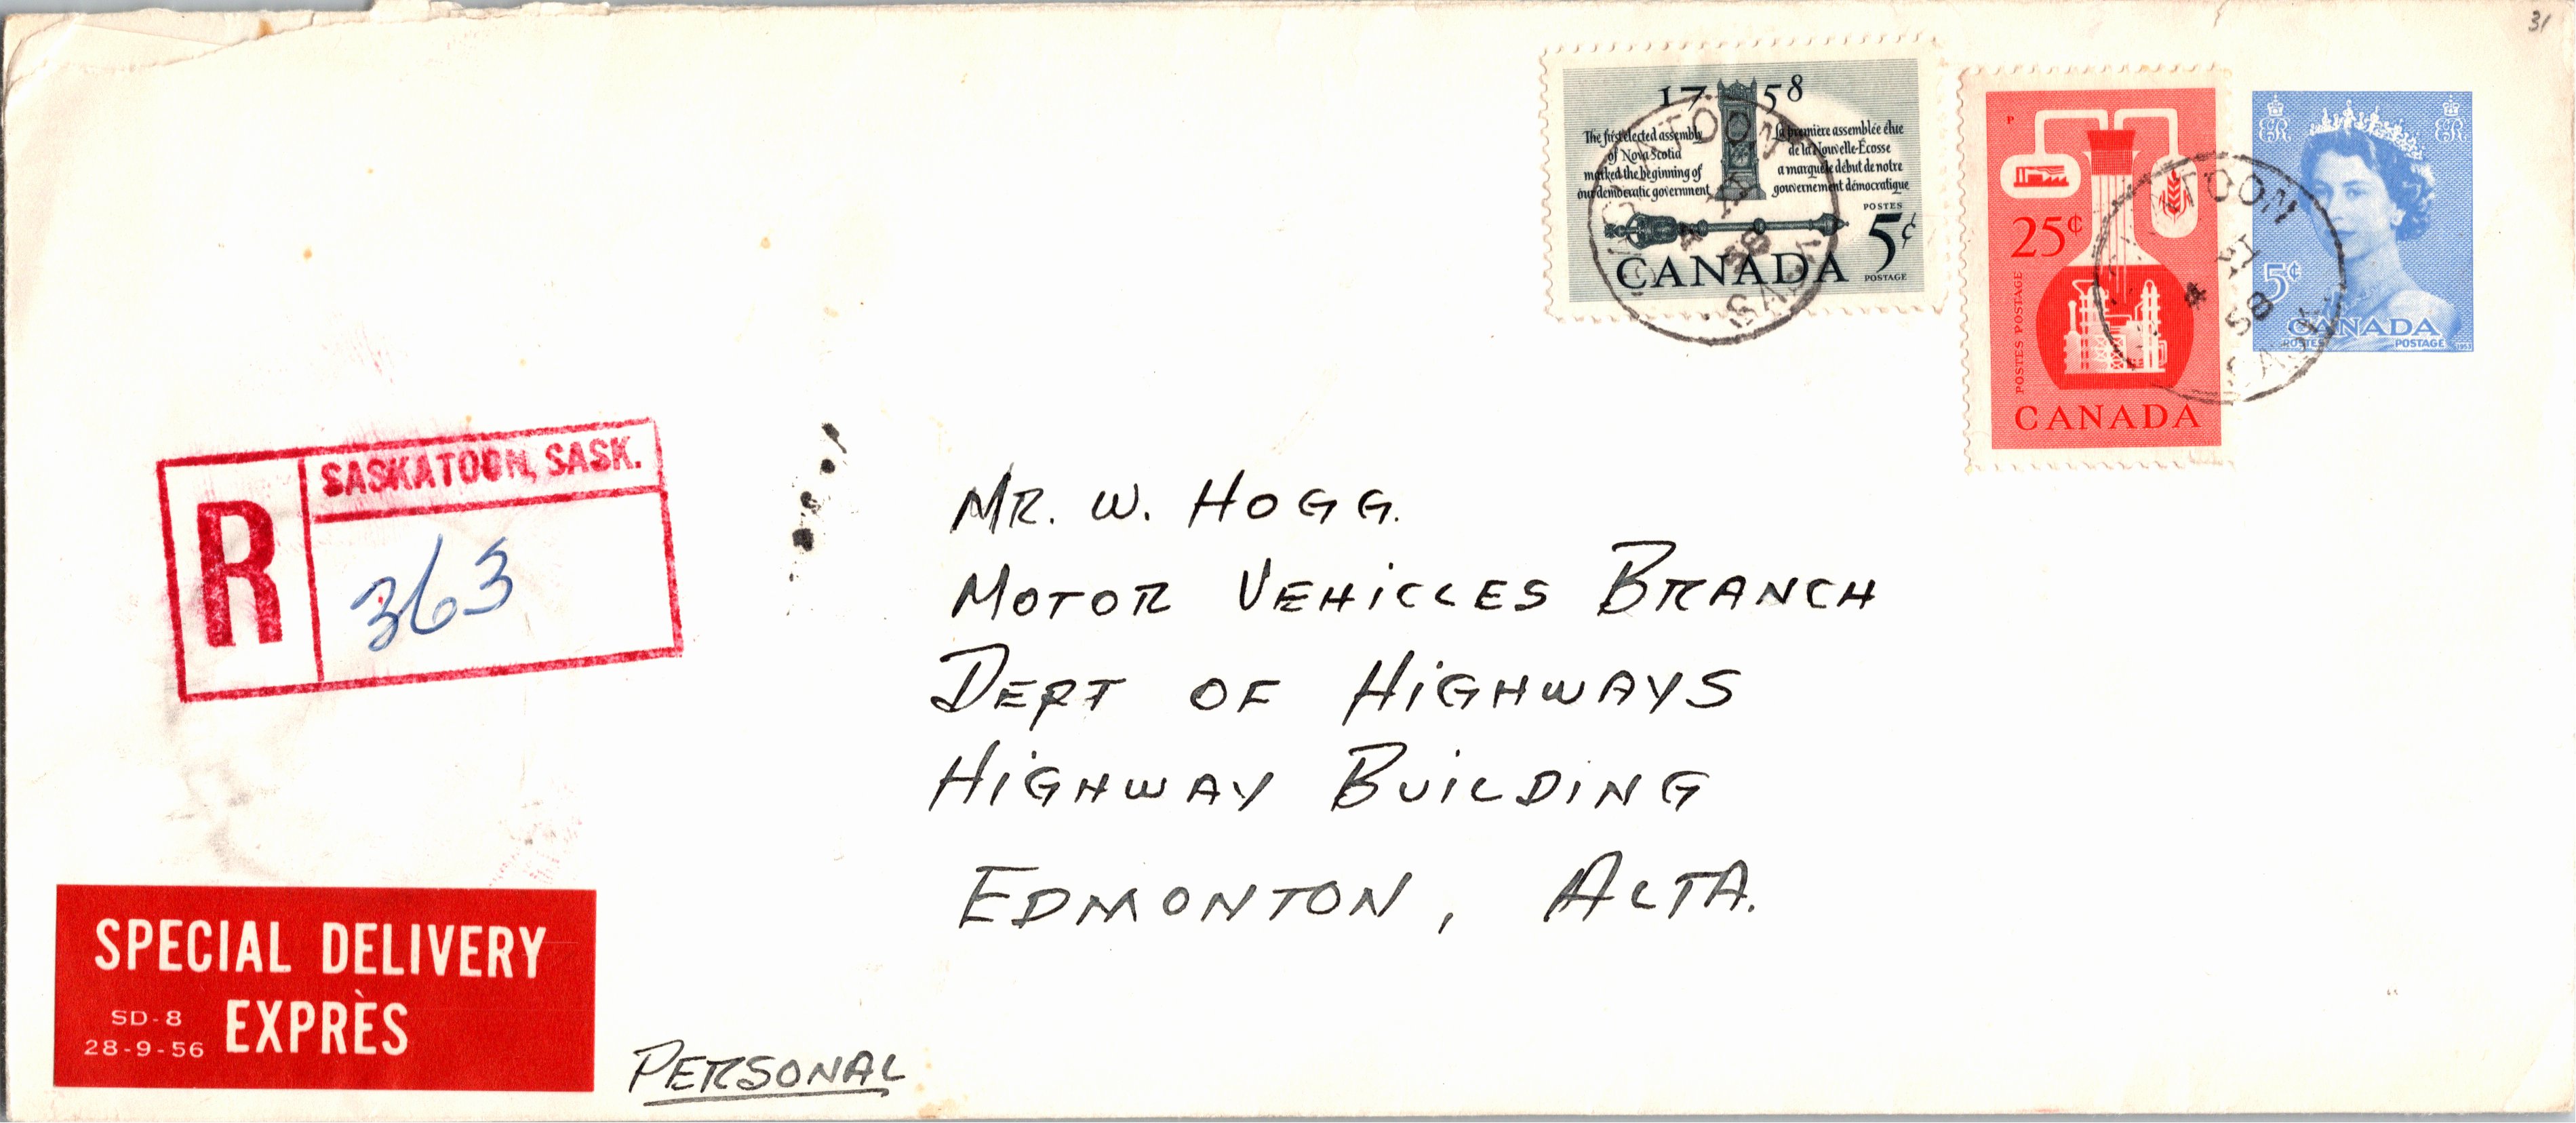 31
17 58
The first elected assembly
of Nova Scotia
marked the beginning of
our democratic government
La première assemblée élue
de la Nouvelle-Écosse
a marqué le début de notre
gouvernement démocratique
POSTES
5¢
POSTAGE
CANADA
P
25¢
POSTES POSTAGE
CANADA
EIIR EIIR
5¢
CANADA
POSTES POSTAGE 1953
SASK
58
R
SASKATOON, SASK.
363
MR. W. HOGG.
MOTOR VEHICLES BRANCH
DEPT OF HIGHWAYS
HIGHWAY BUILDING
EDMONTON, ALTA.
SPECIAL DELIVERY
EXPRÈS
SD-8
28-9-56
PERSONAL